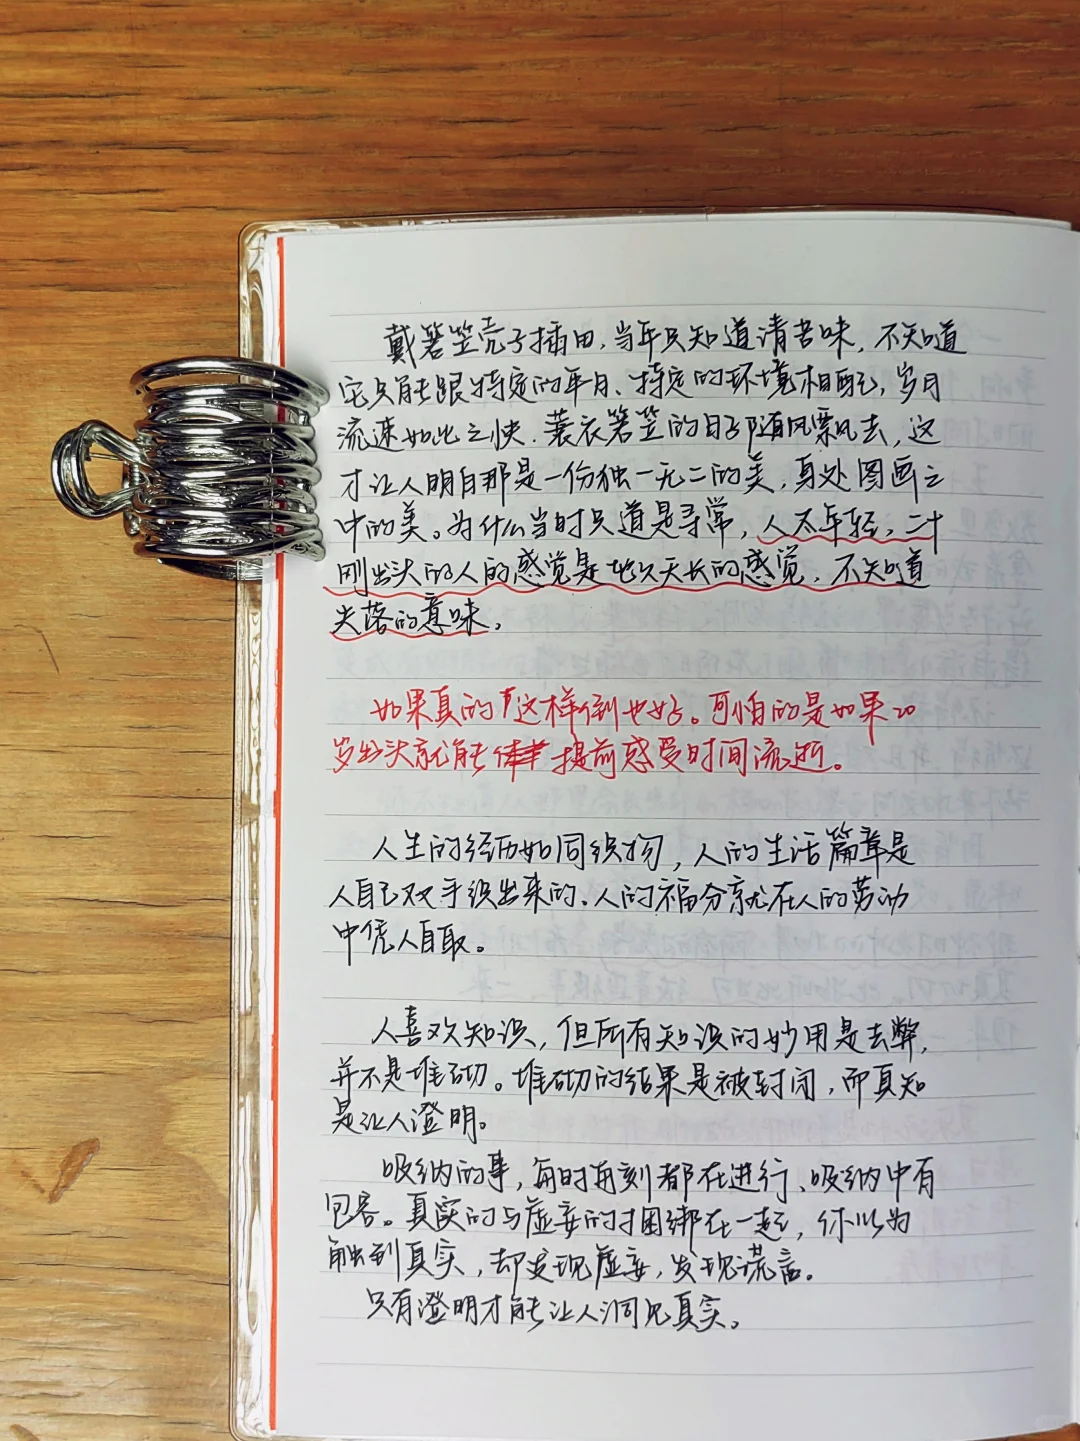 戴箬笠壳子插田，当年只知道清苦味，不知道
它只能跟特定的年月、特定的环境相配，岁月
流速如此之快，蓑衣箬笠的日子随风飘去，这
才让人明白那是一份独一无二的美，身处图画之
中的美。为什么当时只道是寻常，人太年轻，二十
刚出头的人的感觉是地久天长的感觉，不知道
失落的意味，
如果真的这样倒也好。可怕的是如果20
岁出头就能提前感受时间流逝。
人生的经历如同织物，人的生活篇章是
人自己双手织出来的，人的福分就在人的劳动
中凭人自取。
人喜欢知识，但所有知识的妙用是去弊，
并不是堆砌。堆砌的结果是被封闭，而真知
是让人澄明。
吸纳的事，每时每刻都在进行、吸纳中有
包容。真实的与虚妄的捆绑在一起，你以为
触到真实，却发现虚妄，发现谎言。
只有澄明才能让人洞见真实。